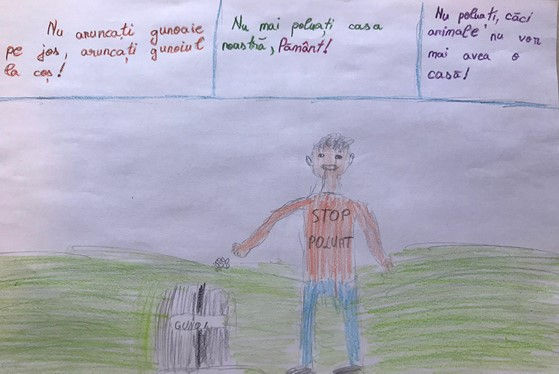 Nu aruncați gunoaie
pe jos, aruncați gunoiul
la coș!
Nu mai poluați casa
noastră, Pământ!
Nu poluați, căci
animale nu vor
mai avea o
casă!
STOP
POLUAT